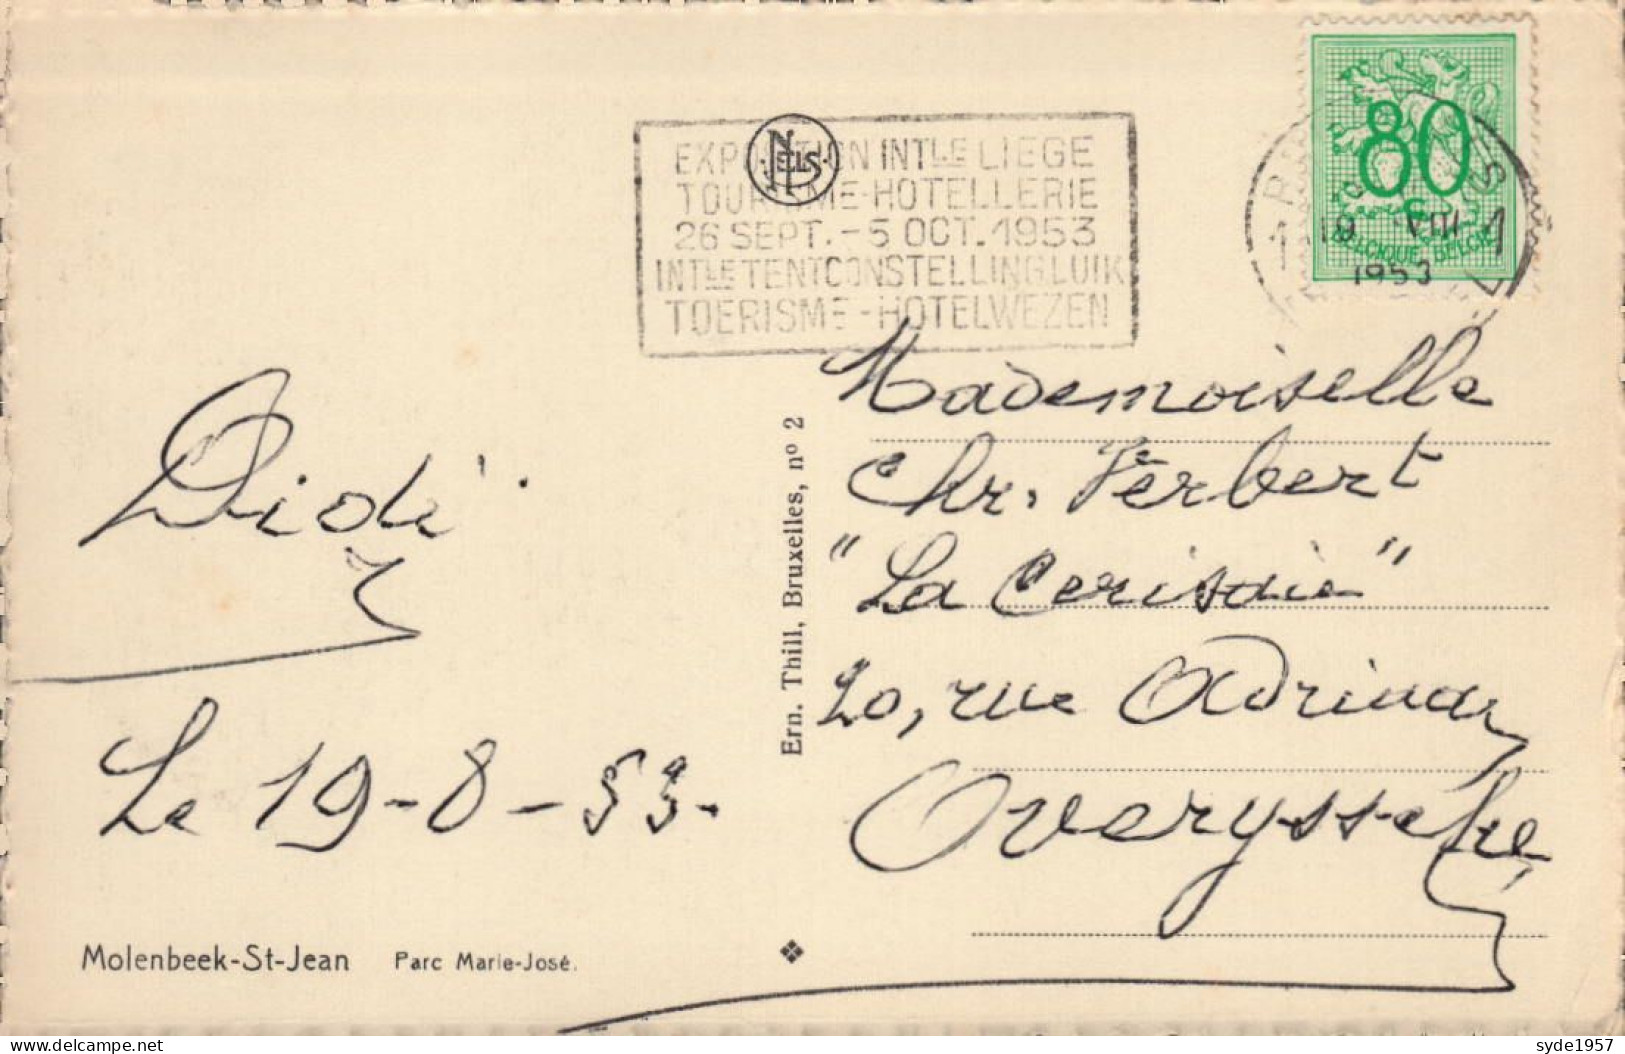 EXPOSITION INTLE LIEGE
TOURISME-HOTELLERIE
26 SEPT.-5 OCT.1953
INTLE TENTOONSTELLING LUIK
TOERISME-HOTELWEZEN
NELS
80
BELGIQUE-BELGIE
19 VIII
1953
Mademoiselle
Chr. Verbert
"La Cerisaie"
20, rue
Overyssche
Didi
Le 19-8-53.
Ern. Thill, Bruxelles, nº 2
Molenbeek-St-Jean Parc Marie-José.
syde1957